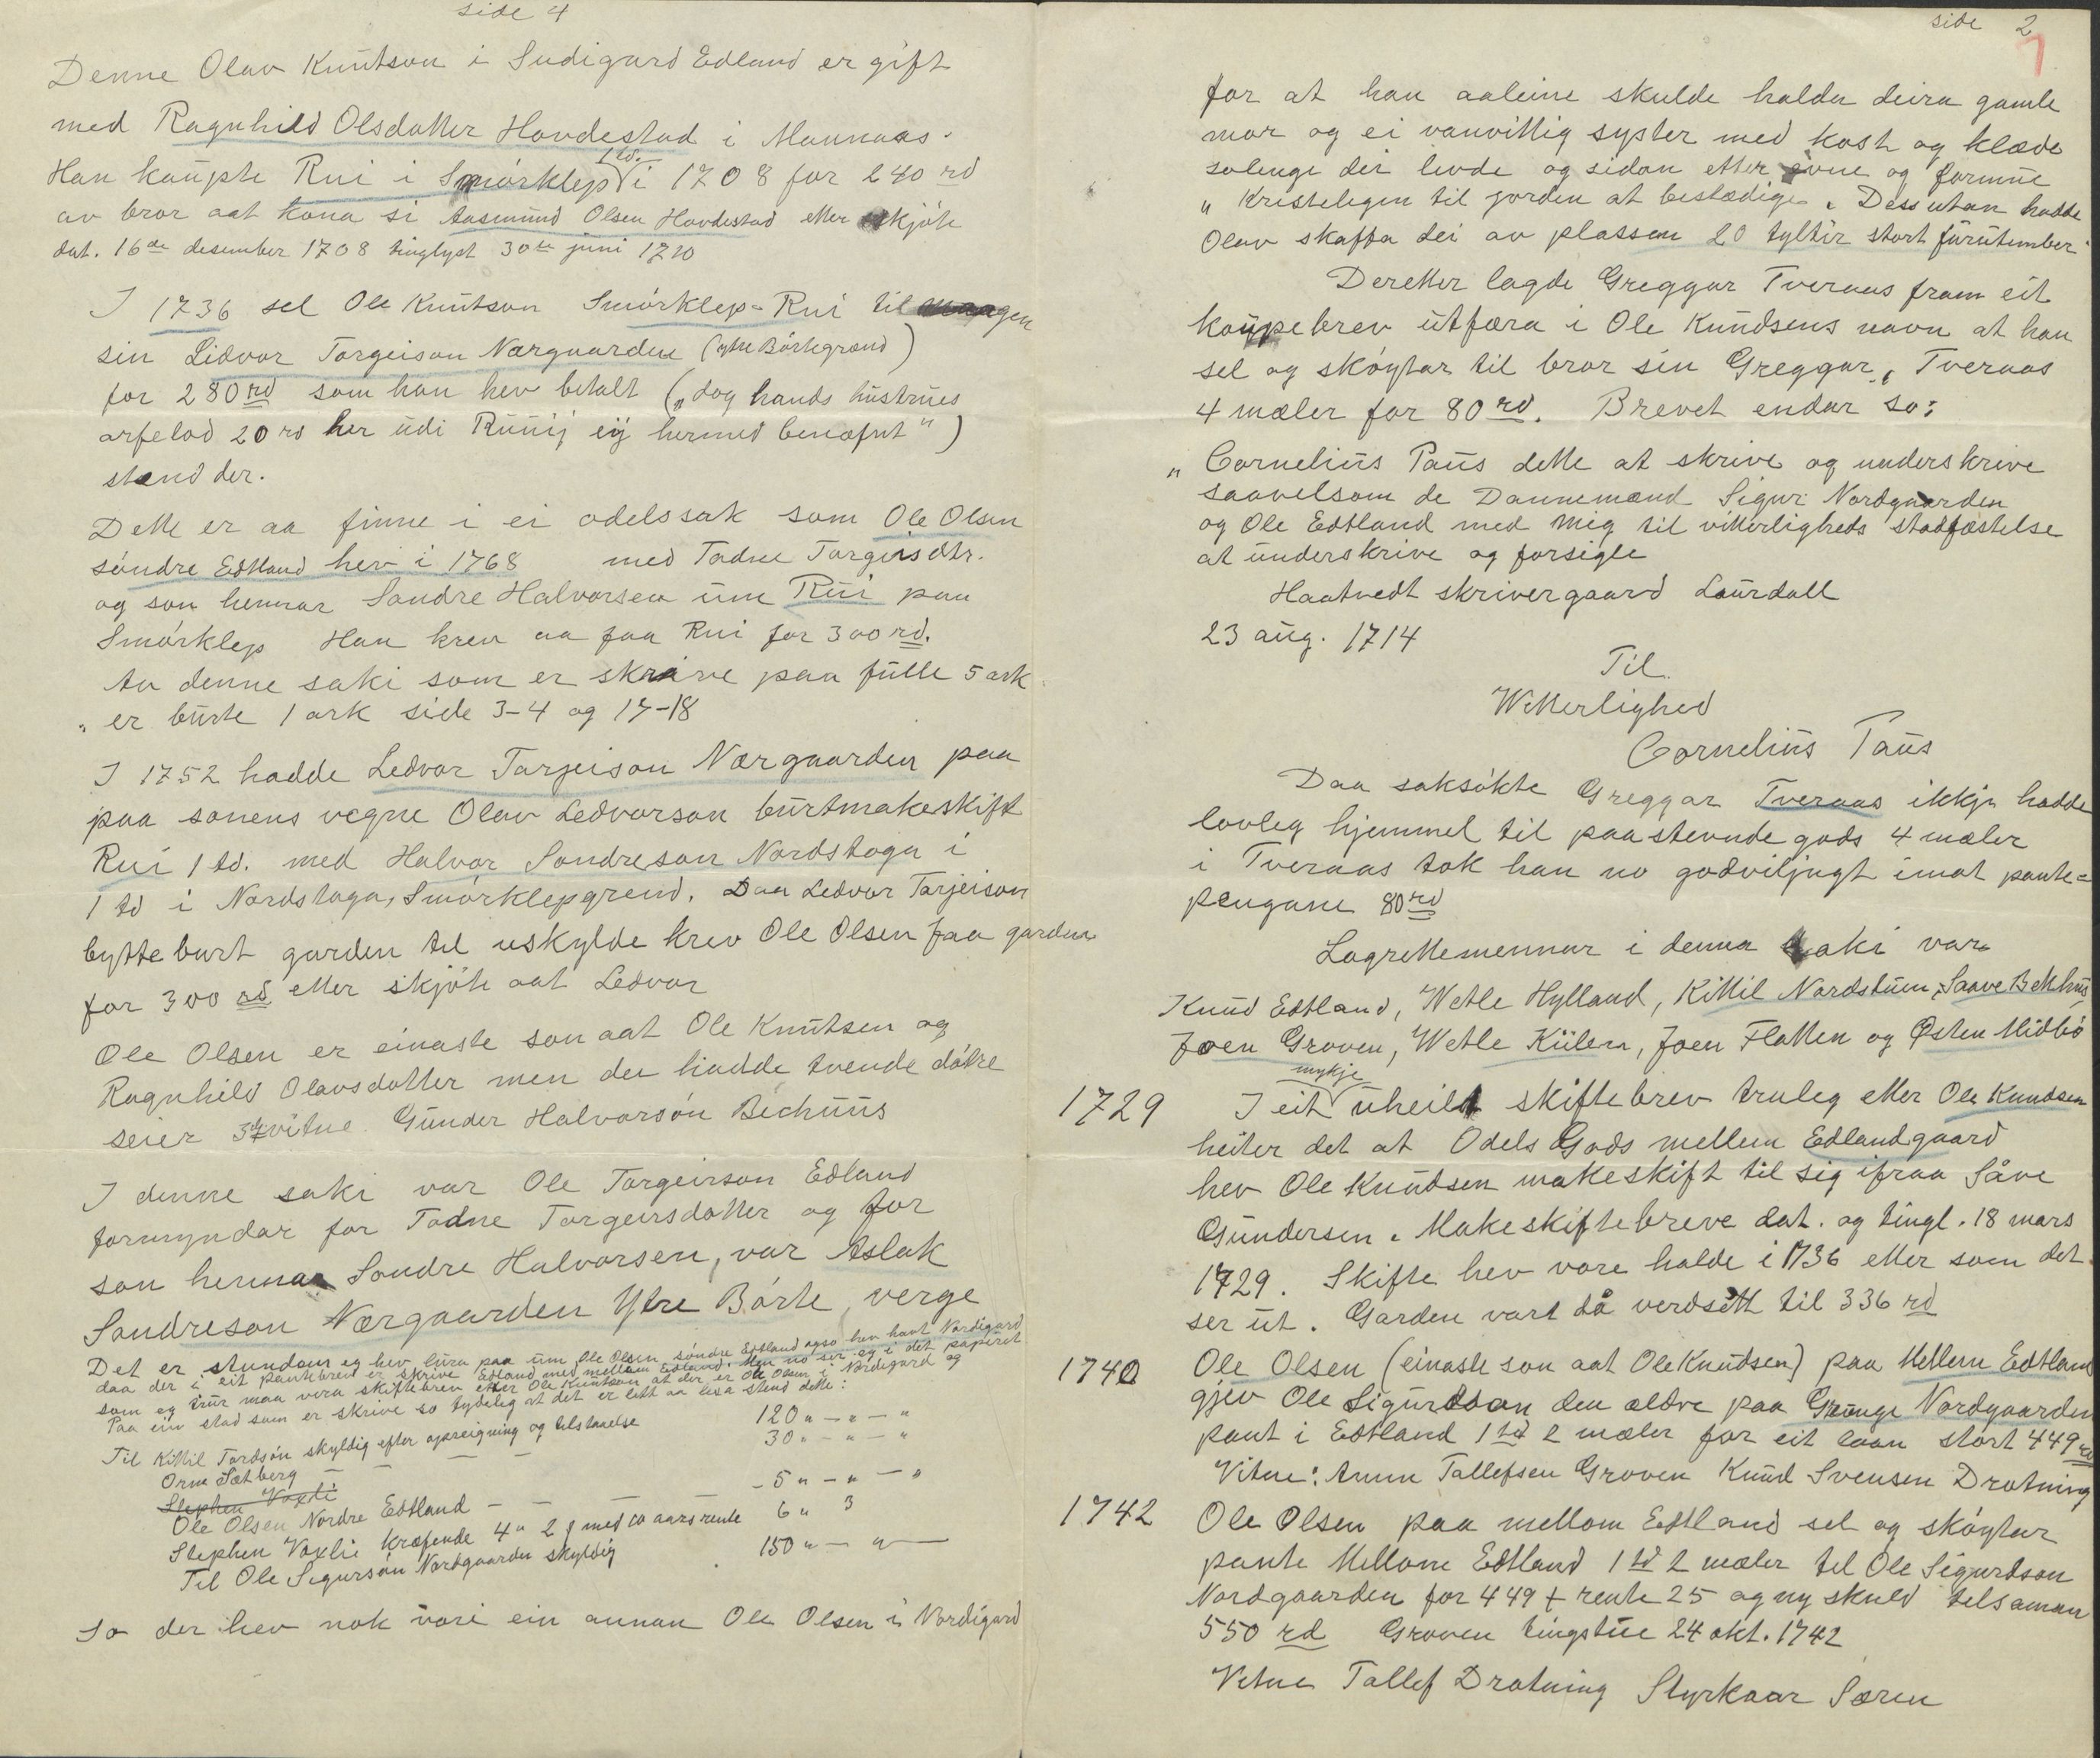 side 4
Denne Olav Knutson i Sudigard Edland er gift
med Ragnhild Olsdatter Hovdestad i Mannaas.
Han kaupte Rui i Smörklep 1 td. i 1708 for 240 rd
av bror aat kona si Aasmund Olsen Hovdestad etter skjöte
dat. 16de desember 1708 tinglyst 30te juni 1710
I 1736 sel Ole Knutson Smörklep-Rui til maagen
sin Lidvor Torgeison Nærgaarden (ytre Börtegrænd)
for 280 rd som han hev betalt („dog hands hustrues
arfelod 20 rd her udi Ruuij eij hermed benæfnt")
stend der.
Dette er aa finne i ei odelssak som Ole Olsen
söndre Edtland hev i 1768 med Tadne Torgeisdtr.
og son hennar Sondre Halvorsen um Rui paa
Smörklep Han krev aa faa Rui for 300 rd.
Av denne saki som er skrive paa fulle 5 ark
„ er burte 1 ark side 3-4 og 17-18
I 1752 hadde Ledvor Tarjeison Nærgaarden paa
paa sonens vegne Olav Ledvorson burtmakeskift
Rui 1 td. med Halvor Sondreson Nordstoga i
1 td i Nordstoga, Smörklepgrend. Daa Ledvor Tarjeison
bytte burt garden til uskylde krev Ole Olsen faa garden
for 300 rd etter skjöte aat Ledvor
Ole Olsen er einaste son aat Ole Knutsen og
Ragnhild Olavsdatter men dei hadde tvende dötre
seier 3die vitne Gunder Halvorsön Bechuus
I denne saki var Ole Torgeirson Edland
formyndar for Tadne Torgeirsdatter og for
son hennar Sondre Halvorsen, var Aslak
Sondreson Nærgaarden Ytre Börte, verge
Det er stundom eg hev lura paa um Ole Olsen söndre Edtland ogso hev havt Nordigard
daa der i eit pantebrev er skrive Edland med mellom Edland. Men no ser eg i det papiret
som eg trur maa vera skiftebrev etter Ole Knutson at der er Ole Olsen i Nordigard og
Paa ein stad som er skrive so tydeleg at det er lett aa lesa stend dette:
Til Kittil Tordsön skyldig efter opreigning og tilstaaelse 120 „ — „ — „
Orm Sætberg — — — 30 „ — „ — „
Stephen Vaxli
Ole Olsen Nordre Edtland — — — 5 „ — „ — „
Stephen Vaxlie kræfende 4 „ 2 f med 10 aars rente 6 „ 3
Til Ole Sigursön Nordgaarden skyldig 150 „ — „ —
So der hev nok vori ein annan Ole Olsen i Nordigard
side 2
for at han aaleine skulde halda deira gamle
mor og ei vanvittig syster med kost og klæde
solenge dei levde og sidan etter evne og formue
„ Kristelegen til jorden at bestædige. Dessutan hadde
Olav skaffa dei av plassen 20 tyltir stort furutember"
Deretter lagde Greggar Tveraas fram eit
kaupebrev utfæra i Ole Knudsens navn at han
sel og sköytar til bror sin Greggar, Tveraas
4 mæler for 80 rd. Brevet endar so:
„ Cornelius Paus dette at skrive og underskrive
saavelsom de Dannemænd Sigur Nordgaarden
og Ole Edtland med mig til vitterligheds stadfæstelse
at underskrive og forsigle
Haatvedt skrivergaard Laurdall
23 aug. 1714
Til
Witterlighed
Cornelius Paus
Daa saksökte Greggar Tveraas ikkje hadde
lovleg hjemmel til paastevnde gods 4 mæler
i Tveraas tok han no godviljugt imot pante=
pengane 80 rd
Lagrettemennar i denna saki var
Knud Edtland, Wetle Hylland, Kittil Nordstuen, Saave Bekhus
Joen Groven, Wetle Kiilen, Joen Flatten og Østen Midbö
1729 I eit mykje uheilt skiftebrev truleg etter Ole Knudsen
heiter det at Odels Gods mellem Edlandgaard
hev Ole Knudsen makeskift til sig ifraa Såve
Gundersen. Makeskiftebreve dat. og tingl. 18 mars
1729. Skifte hev vore halde i 1736 etter som det
ser ut. Garden vart då verdsett til 336 rd
1740 Ole Olsen (einaste son aat Ole Knudsen) paa Mellem Edtland
gjev Ole Sigurdson den ældre paa Grunge Nordgaarden
pant i Edtland 1 td 2 mæler for eit laan stort 449 rd
Vitne: Anun Tallefsen Groven Knud Svensen Drotning
1742 Ole Olsen paa mellom Edtland sel og sköytar
pante Mellom Edtland 1 td 2 mæler til Ole Sigurdson
Nordgaarden for 449 + rente 25 og ny skuld tilsaman
550 rd Groven tingstue 24 okt. 1742
Vitne Tallef Drotning Styrkaar Særen